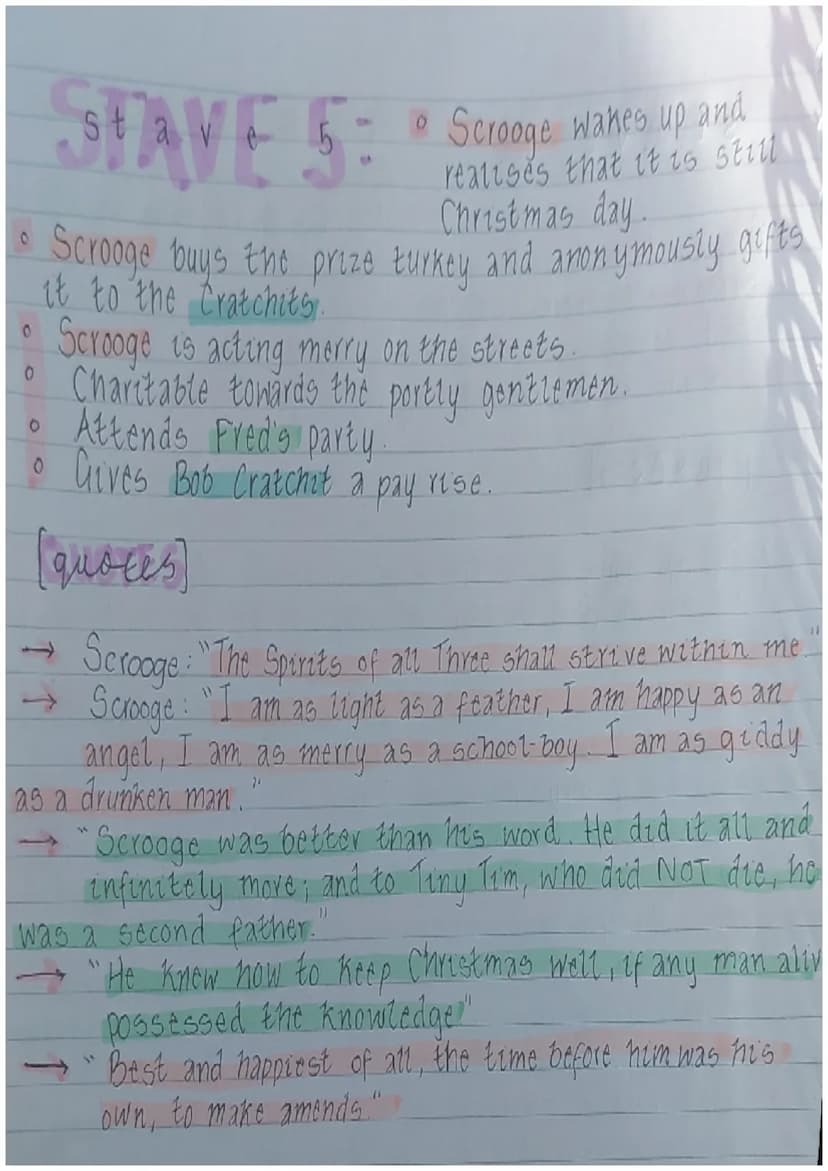 STAVE 5:
stave 5
° Scrooge wakes up and
realises that it is still
Christmas day.
° Scrooge buys the prize turkey and anonymously gifts
it to the Cratchits.
° Scrooge is acting merry on the streets.
° Charitable towards the portly gentlemen.
° Attends Fred's party.
° Gives Bob Cratchit a pay rise.
[quotes]
QUOTES
→ Scrooge: "The Spirits of all Three shall strive within me"
→ Scrooge: "I am as light as a feather, I am happy as an
angel, I am as merry as a school-boy. I am as giddy
as a drunken man."
→ "Scrooge was better than his word. He did it all and
infinitely more; and to Tiny Tim, who did NOT die, he
was a second father."
→ "He knew how to keep Christmas well, if any man aliv
possessed the knowledge"
→ "Best and happiest of all, the time before him was his
own, to make amends"